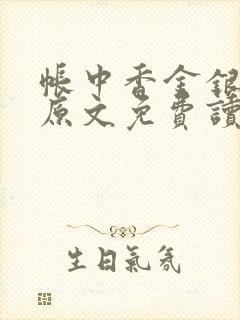 帳中香金銀
原文免費讀
生日氣氛